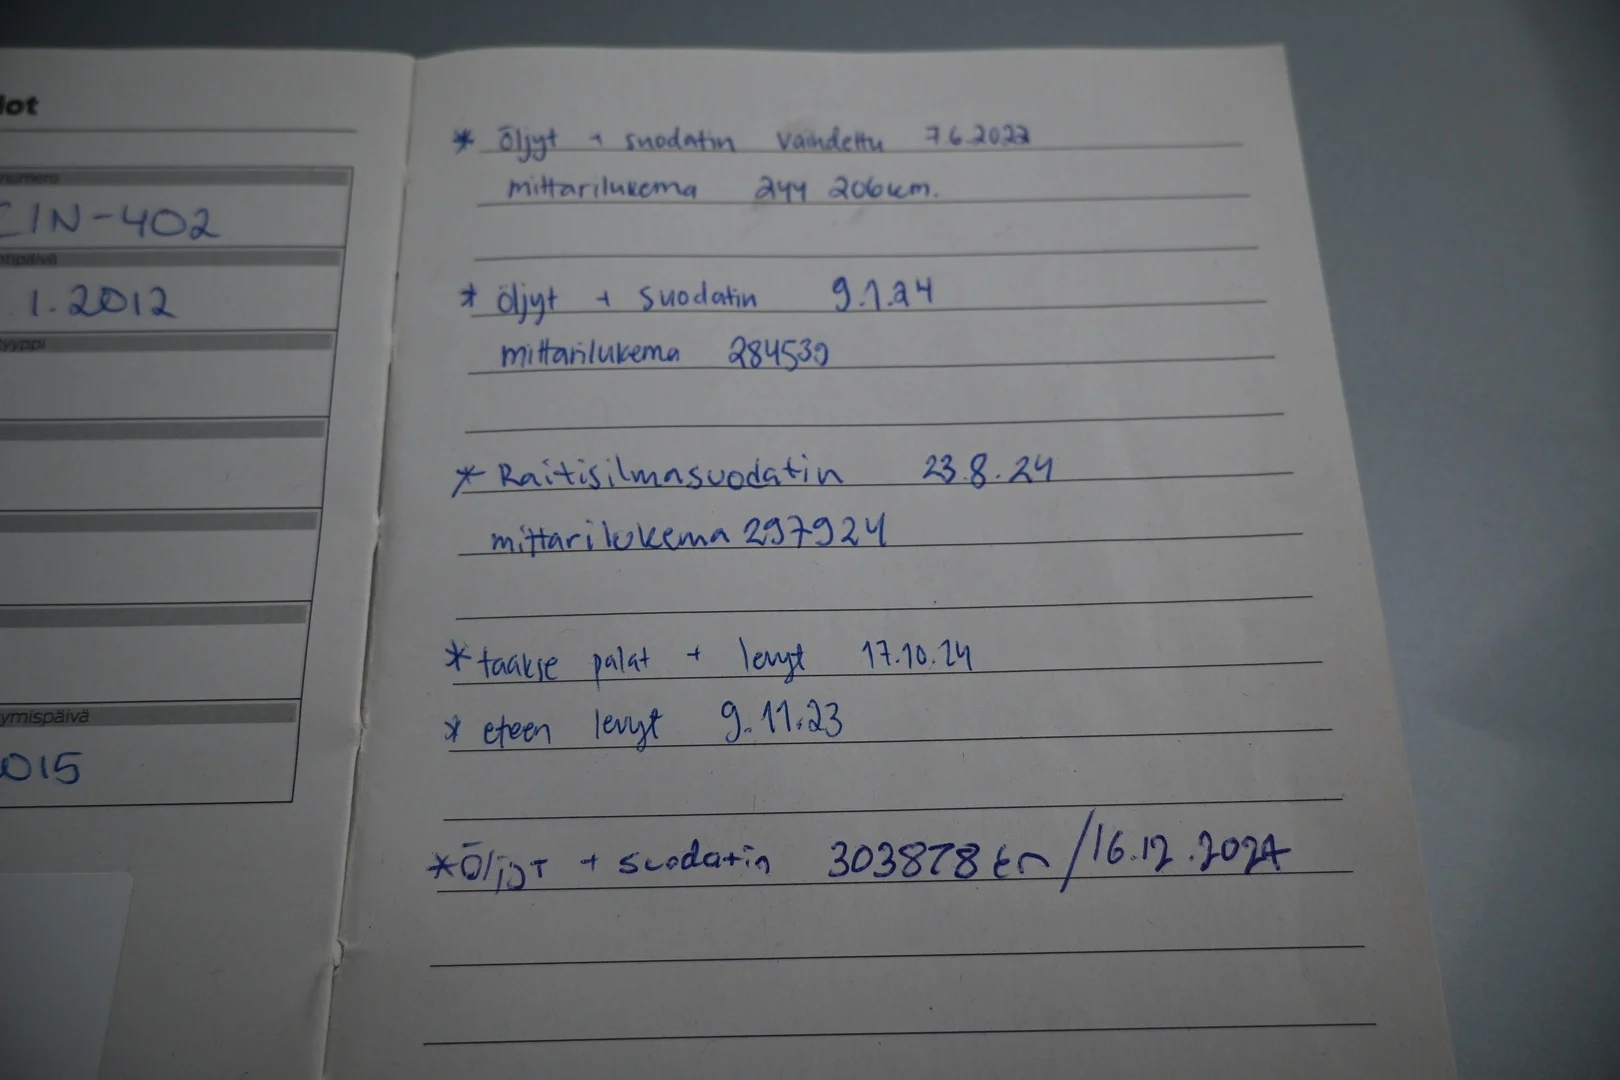 lot
numero
CIN-402
ntipäivä
1.2012
tyyppi
ymispäivä
015
* öljyt + suodatin vaihdettu 7.6.2022
mittarilukema 244 206km.
* öljyt + suodatin 9.1.24
mittarilukema 284539
* Raitisilmasuodatin 23.8.24
mittarilukema 297924
* taakse palat + levyt 17.10.24
* eteen levyt 9.11.23
* Öljyt + suodatin 303878 km / 16.12.2024